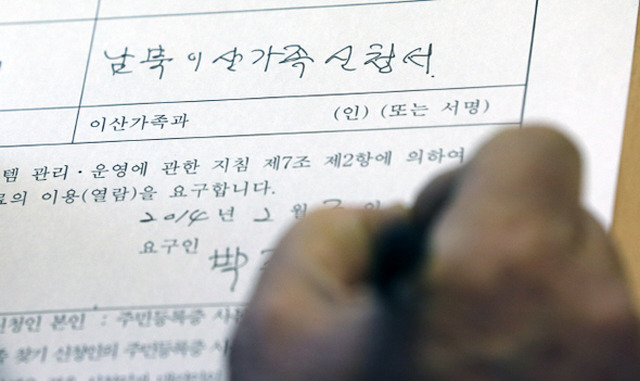 남북이산가족신청서
이산가족과 (인) (또는 서명)
템 관리·운영에 관한 지침 제7조 제2항에 의하여
료의 이용(열람)을 요구합니다.
2014 년 2 월
요구인 朴
신청인 본인 : 주민등록증 사본
찾기 신청인의 주민등록증 사